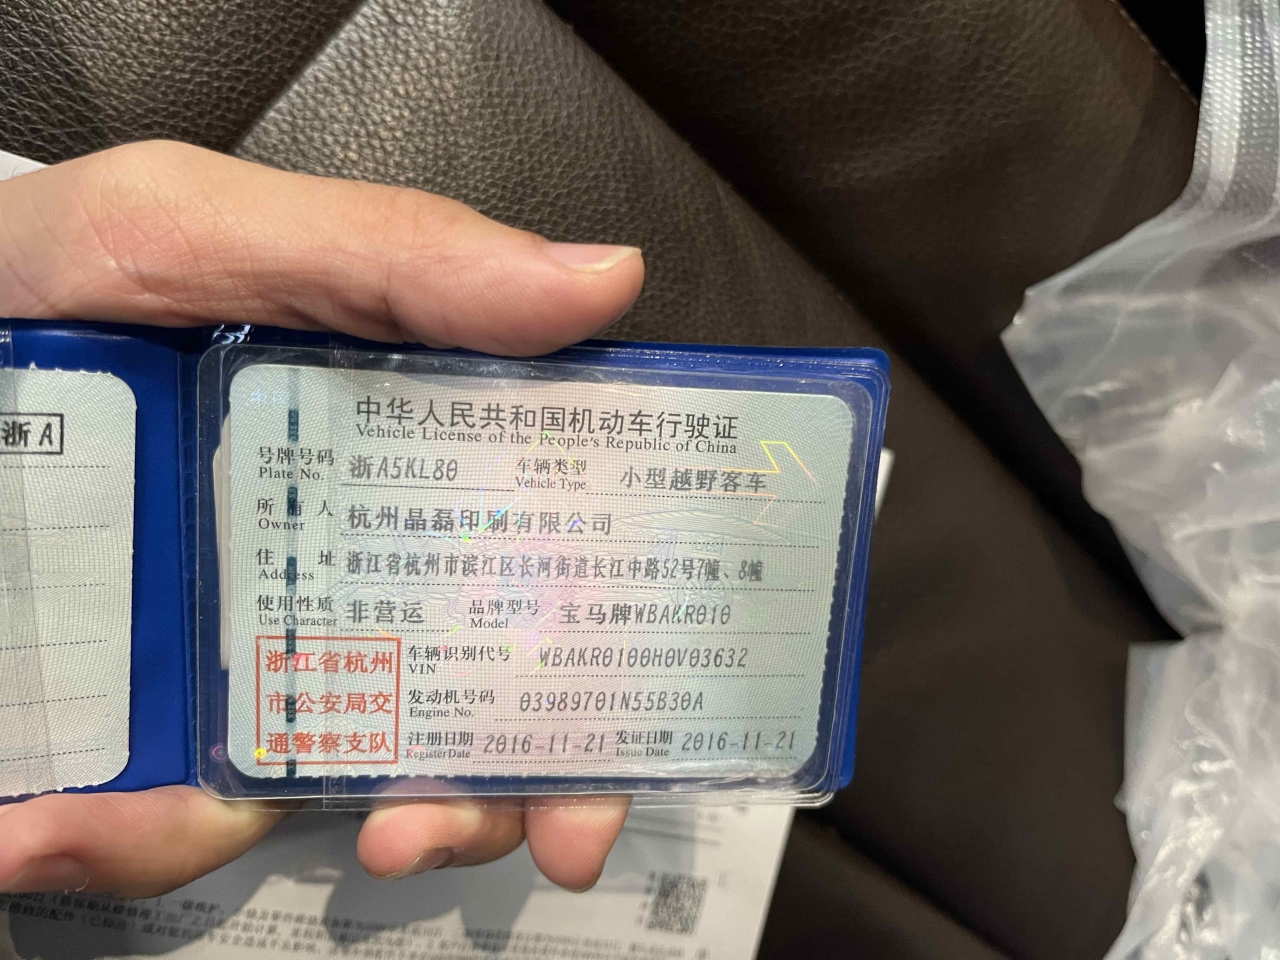 浙A
中华人民共和国机动车行驶证
Vehicle License of the People's Republic of China
号牌号码 浙A5KL80 车辆类型 小型越野客车
Plate No. Vehicle Type
所有人 杭州晶磊印刷有限公司
Owner
住址 浙江省杭州市滨江区长河街道长江中路52号7幢、8幢
Address
使用性质 非营运 品牌型号 宝马牌WBAKR010
Use Character Model
浙江省杭州 车辆识别代号 WBAKR0100H0V03632
VIN
市公安局交 发动机号码 03989701N55B30A
Engine No.
通警察支队 注册日期 2016-11-21 发证日期 2016-11-21
Register Date Issue Date